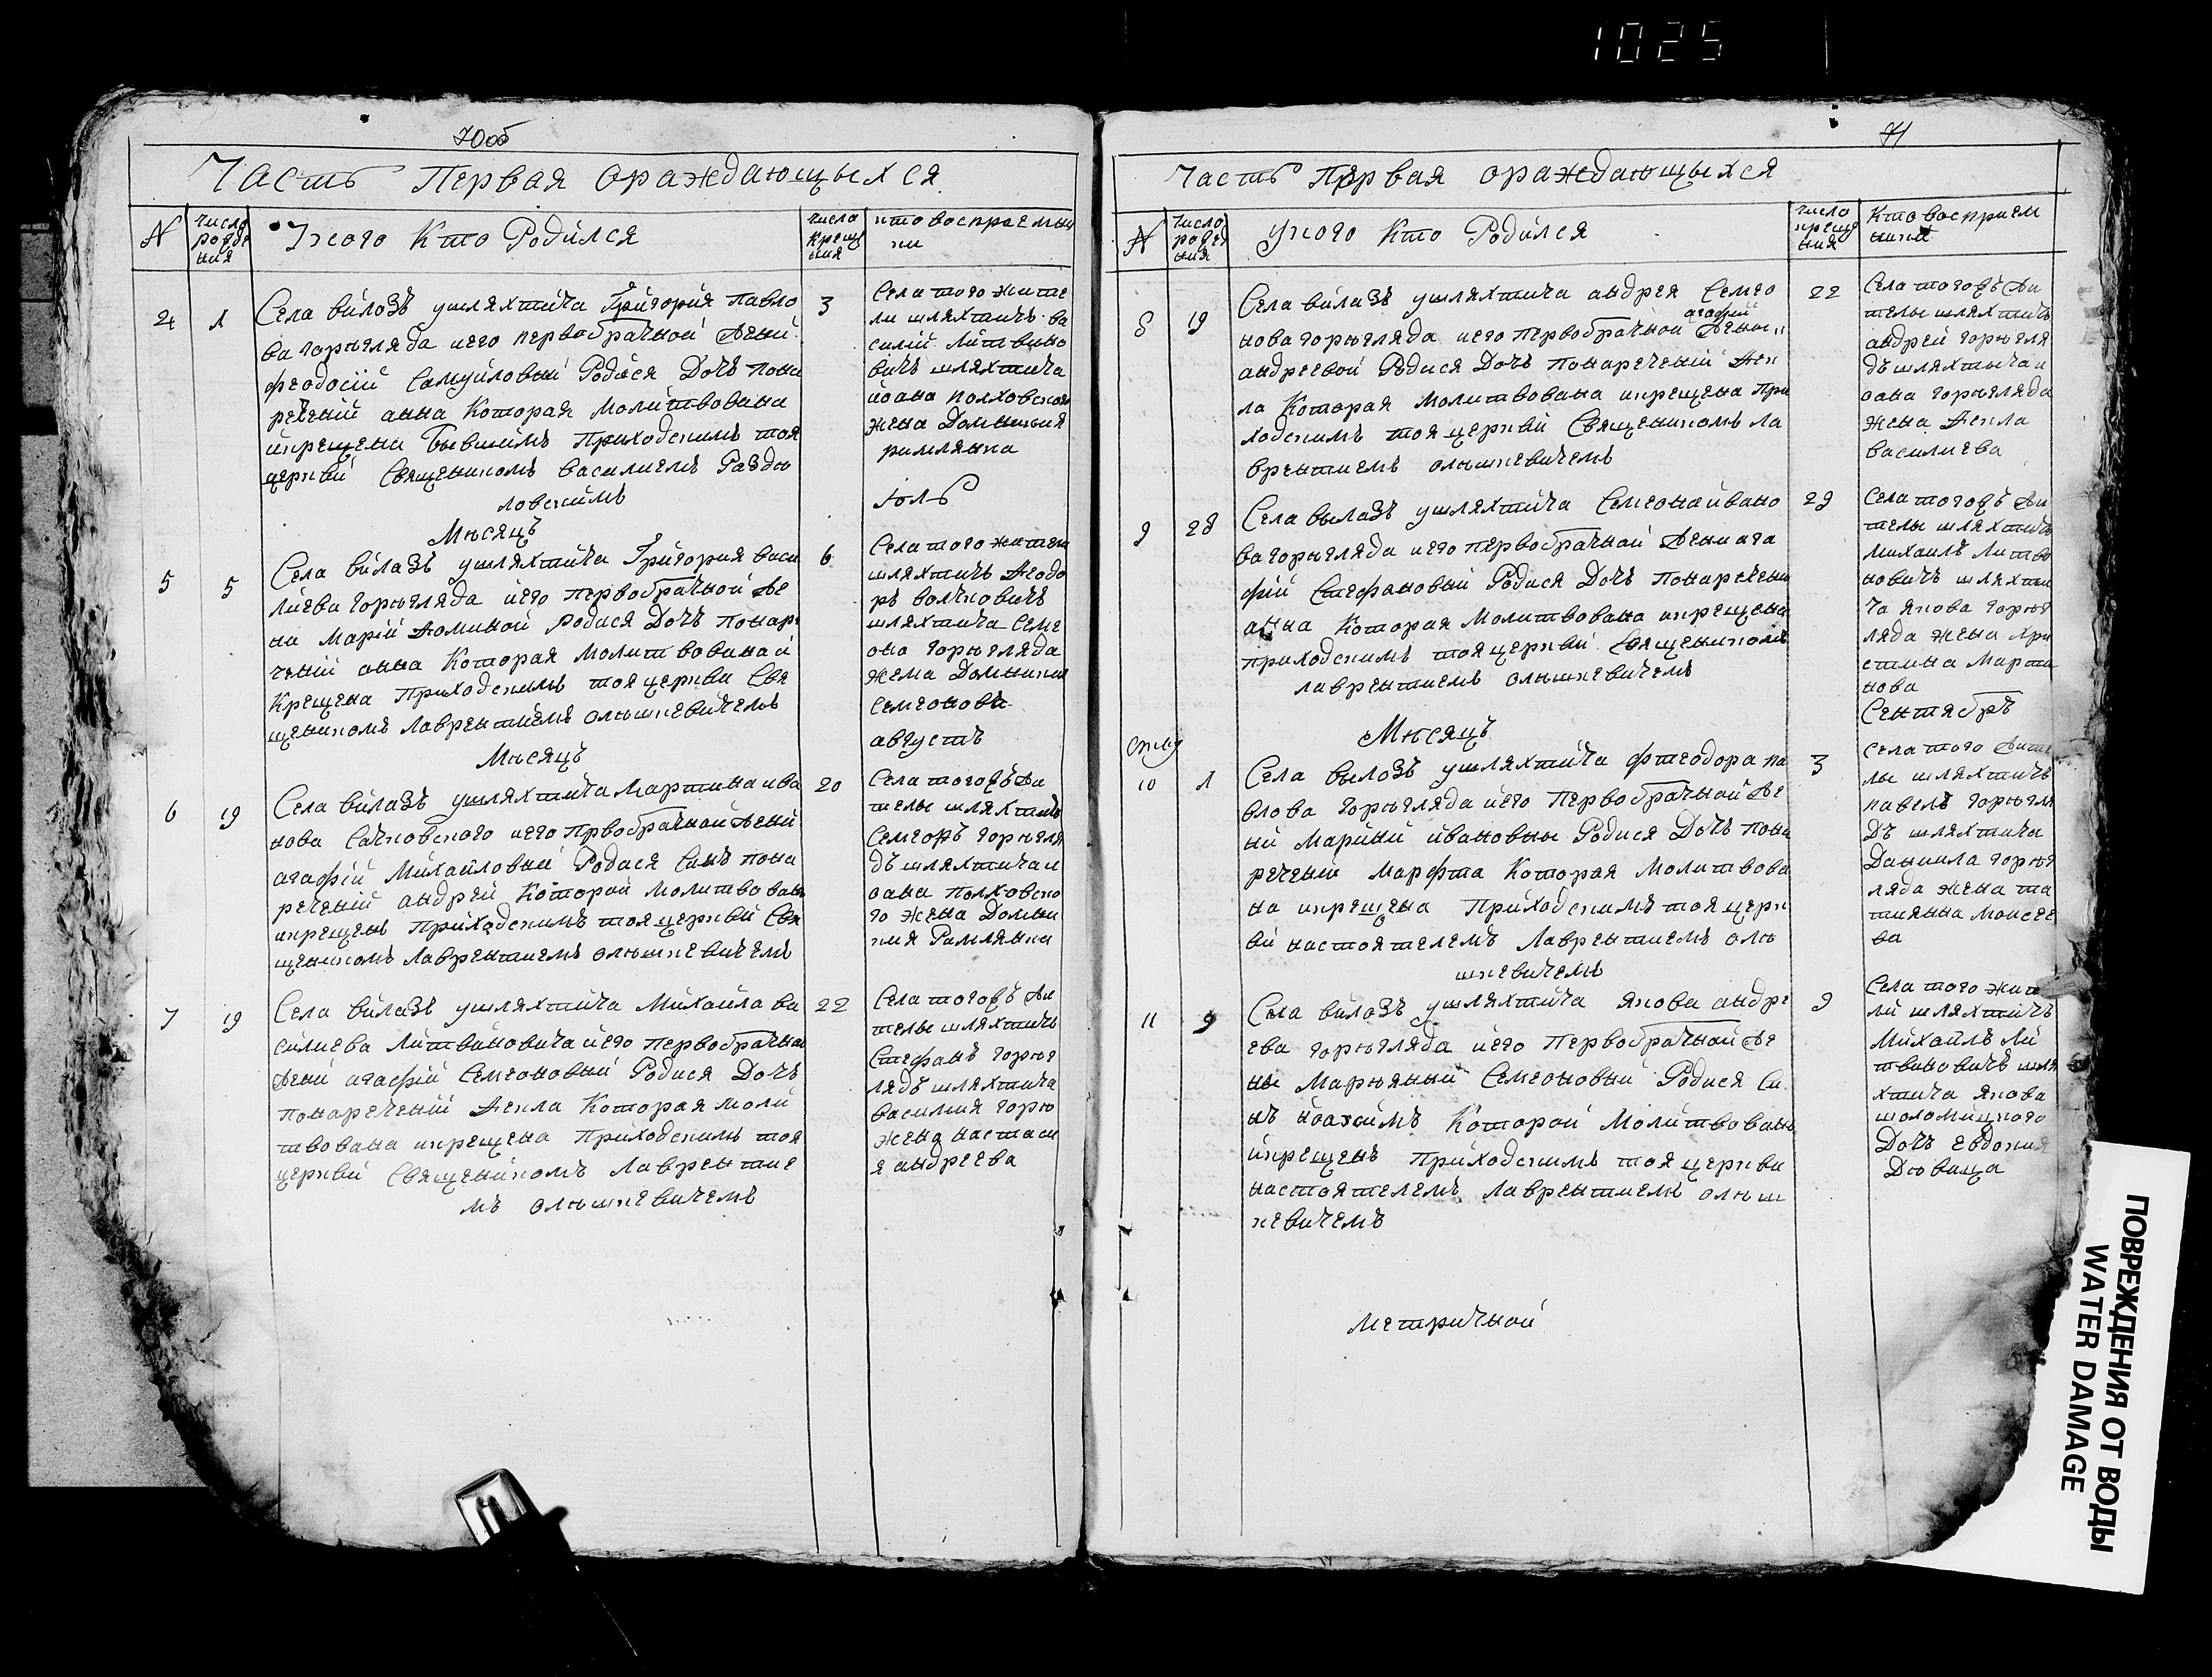 1025
70об
Часть Первая ораждающыхся
N
число рожде ния
Укого Кто Родился
число Креще ния
кто восприемни ки
4
1
Села вилазъ ушляхтича Григория павло
ва горегляда иего первобрачной жени
феодосiй Самуйловый Родися Дочь пона
речений анна Которая молитвована
икрещена бывшимъ Приходскимъ тоя
церквй Священикомъ василиемъ Раздо
ловскимъ
3
Села того жите
ли шляхтичъ ва
силий литвино
вичъ шляхтича
иоана полховского
жена Домникия
римлянка
Мѣсяцъ
июль
5
5
Села вилазъ ушляхтича Григория васи
лиева горегляда иего первобрачной же
ни Марiй Фоминой родися Дочь понаре
чений анна Которая молитвована и
Крещена Приходскимъ тоя церкви Свя
щеникомъ лаврентиемъ олюшкевичемъ
6
Села того жители
шляхтичъ Феодо
ръ волчковичъ
шляхтича Семе
она горегляда
жена Домникия
Семеонова
Мѣсяцъ
августъ
6
19
Села вилазъ ушляхтича мартина ива
нова Сачковского иего первобрачной жений
агафiй Михайловый Родися Синъ пона
речений андрей Которой молитвованъ
икрещенъ Приходскимъ тоя церквй Свя
щеникомъ лаврентиемъ олюшкевичемъ
20
Села тогожъ жи
телы шляхтичъ
Семеонъ горегля
дъ шляхтича и
оана полховско
го жена Домни
кия Римлянка
7
19
Села вилазъ ушляхтича Михаила ва
силиева литвиновича иего первобрачной
жений агафiй Семеоновый Родися Дочь
понаречений Фекла Которая моли
твована икрещена Приходскимъ тоя
церквй Священикомъ лаврентие
мъ олюшкевичемъ
22
Села тогожъ жи
телы шляхтичъ
Стефанъ горег
лядъ шляхтича
василия горе
жена настаси
я андреева
71
Часть Первая ораждающыхся
N
Число рожде ния
укого Кто Родился
число креще ния
Кто восприем ники
8
19
Села вилазъ ушляхтича андрея Семео
агафий
нова горегляда иего первобрачной жены
андреевой Родися Дочь понаречений Фек
ла Которая молитвована икрещена При
ходскимъ тоя церквй Священикомъ ла
врентиемъ олюшкевичемъ
22
Села тогожъ жи
телы шляхтичъ
андрей горегля
дъ шляхтича и
оана горегляда
жена Фекла
василиева
9
28
Села вылазъ ушляхтича Семеона ивано
ва горегляда иего первобрачной жени ага
фiй Стефановый Родися Дочь понаречений
анна Которая молитвована икрещена
приходскимъ тоя церквй Священикомъ
лаврентиемъ олюшкевичемъ
29
Села тогожъ жи
телы шляхтичъ
михаилъ литви
новичъ шляхти
ча якова горег
ляда жена хри
стина марти
нова
Мѣсяцъ
Сентябръ
10
1
Села вылозъ ушляхтича фтеодора па
влова горегляда иего Первобрачной же
ни Мариний ивановны Родися Дочь пона
речений марфта Которая молитвова
на икрещена Приходскимъ тоя церк
вй настоятелемъ лаврентиемъ олю
шкевичемъ
3
Села того жите
лы шляхтичъ
павелъ горегля
дъ шляхтича
Даниила горег
ляда жена та
тияна моисее
ва
11
9
Села вилозъ ушляхтича якова андре
ева горегляда иего Первобрачной же
ны Марияный Семеоновый Родися Си
нъ иоакимъ Которой молитвованъ
икрещенъ Приходскимъ тоя церкви
настоятелемъ лаврентиемъ олюш
кевичемъ
9
Села того жите
ли шляхтичъ
Михаилъ ли
твиновичъ шля
хтича якова
шоломицкого
Дочь евдокия
Дѣвица
метричной
ПОВРЕЖДЕНИЯ ОТ ВОДЫ
WATER DAMAGE